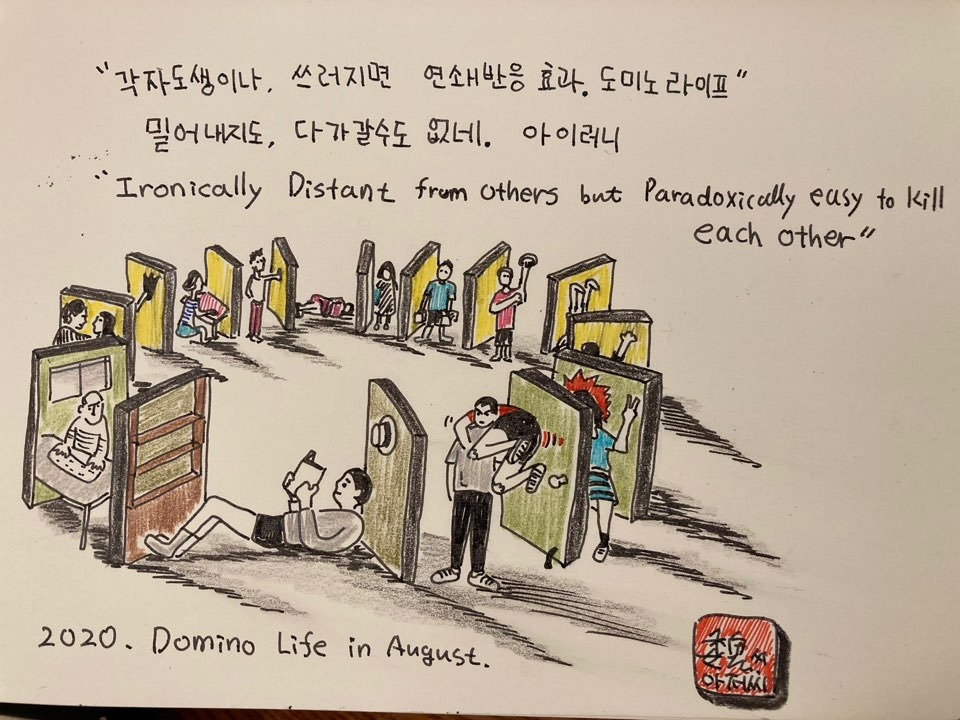 "각자도생이나, 쓰러지면 연쇄반응 효과. 도미노 라이프"
밀어내지도, 다가갈수도 없네. 아이러니
"Ironically Distant from others but Paradoxically easy to kill
each other"
2020. Domino Life in August.
아저씨